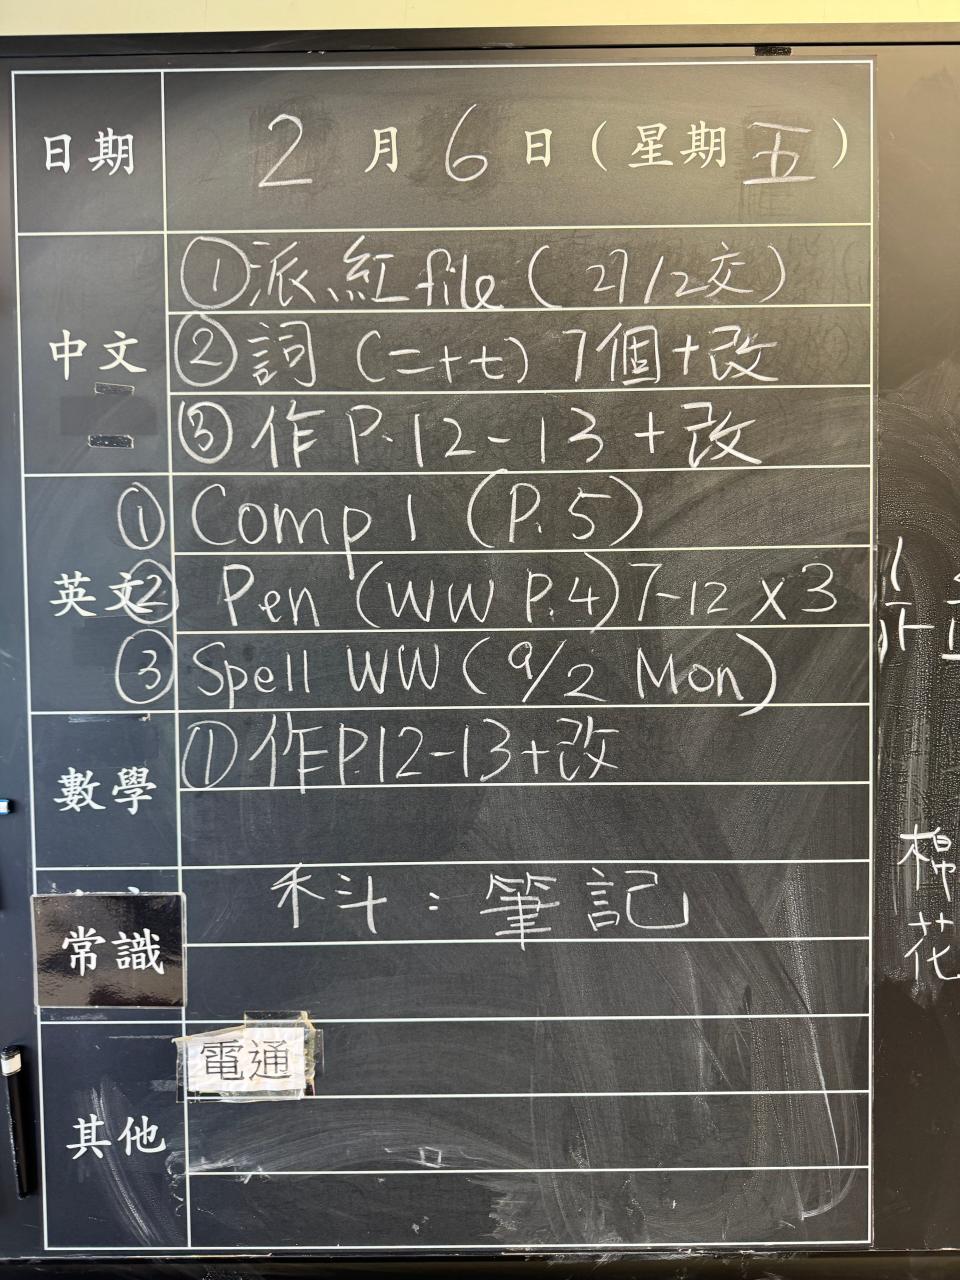 日期 2月6日(星期五)
中文
①派紅file(27/2交)
②詞(二十七)7個+改
③作P.12-13+改
英文
①Comp 1 (P.5)
②Pen (WW P.4) 7-12 x 3
③Spell WW (9/2 Mon)
數學
①作P.12-13+改
常識
科:筆記
其他
電通
棉花